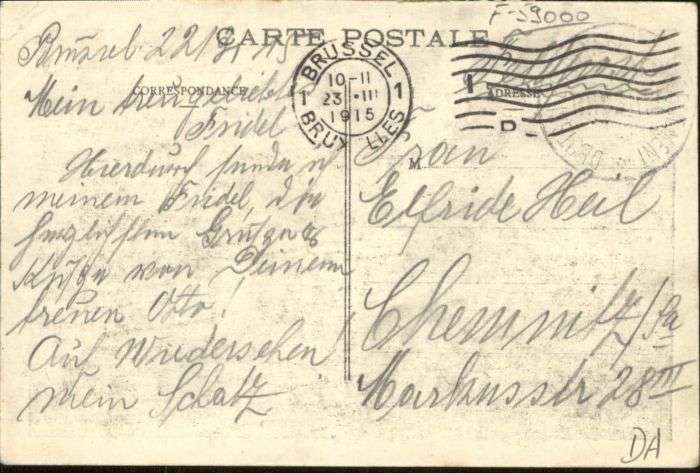 F-39000
CARTE POSTALE
Brüssel 22/3 15
CORRESPONDANCE
Mein treugeliebt
Fridel
Hierdurch sende ich
meinem Fridel, die
herzlichsten Grüße &
Küsse von Deinem
treuen Otto!
Auf Wiedersehen
mein Schatz
BRUSSEL
10-11
1 23 .III 1
1915
BRUX LLES
Feldpost
ADRESSE
M
Frau
Elfride Heil
Chemnitz/Sa
Markusstr 28 III
DA